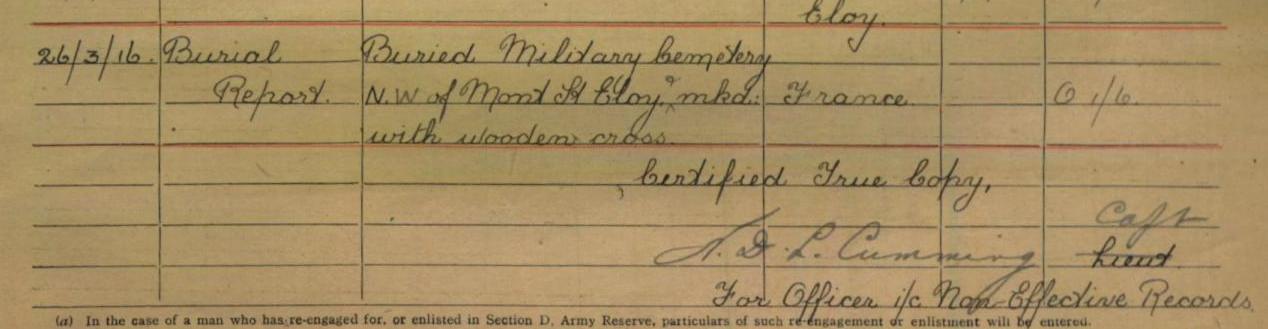 Eloy.
26/3/16. Burial Buried Military Cemetery
Report. N.W of Mont St Eloy, & mkd: France. O 1/6.
with wooden cross.
Certified True Copy,
Capt
D. L. Cumming Lieut.
For Officer i/c Non-Effective Records
(a) In the case of a man who has re-engaged for, or enlisted in Section D, Army Reserve, particulars of such re-engagement or enlistment will be entered.